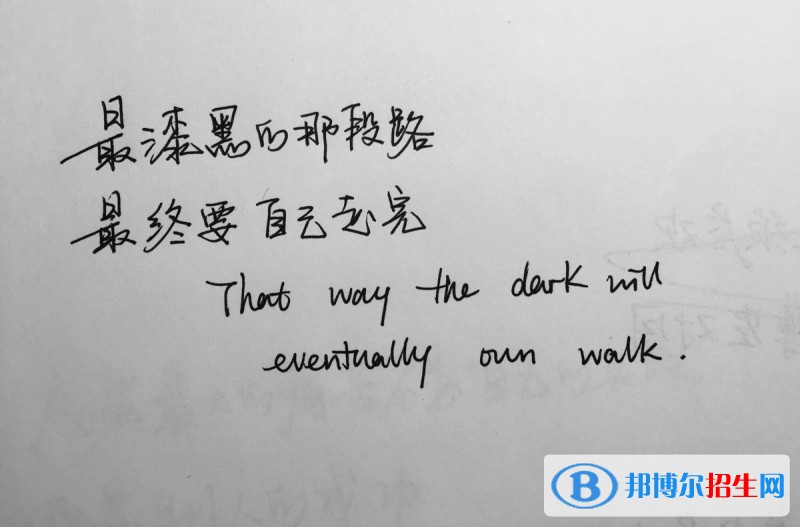 最漆黑的那段路
最终要自己走完
That way the dark will
eventually own walk.
B 邦博尔招生网